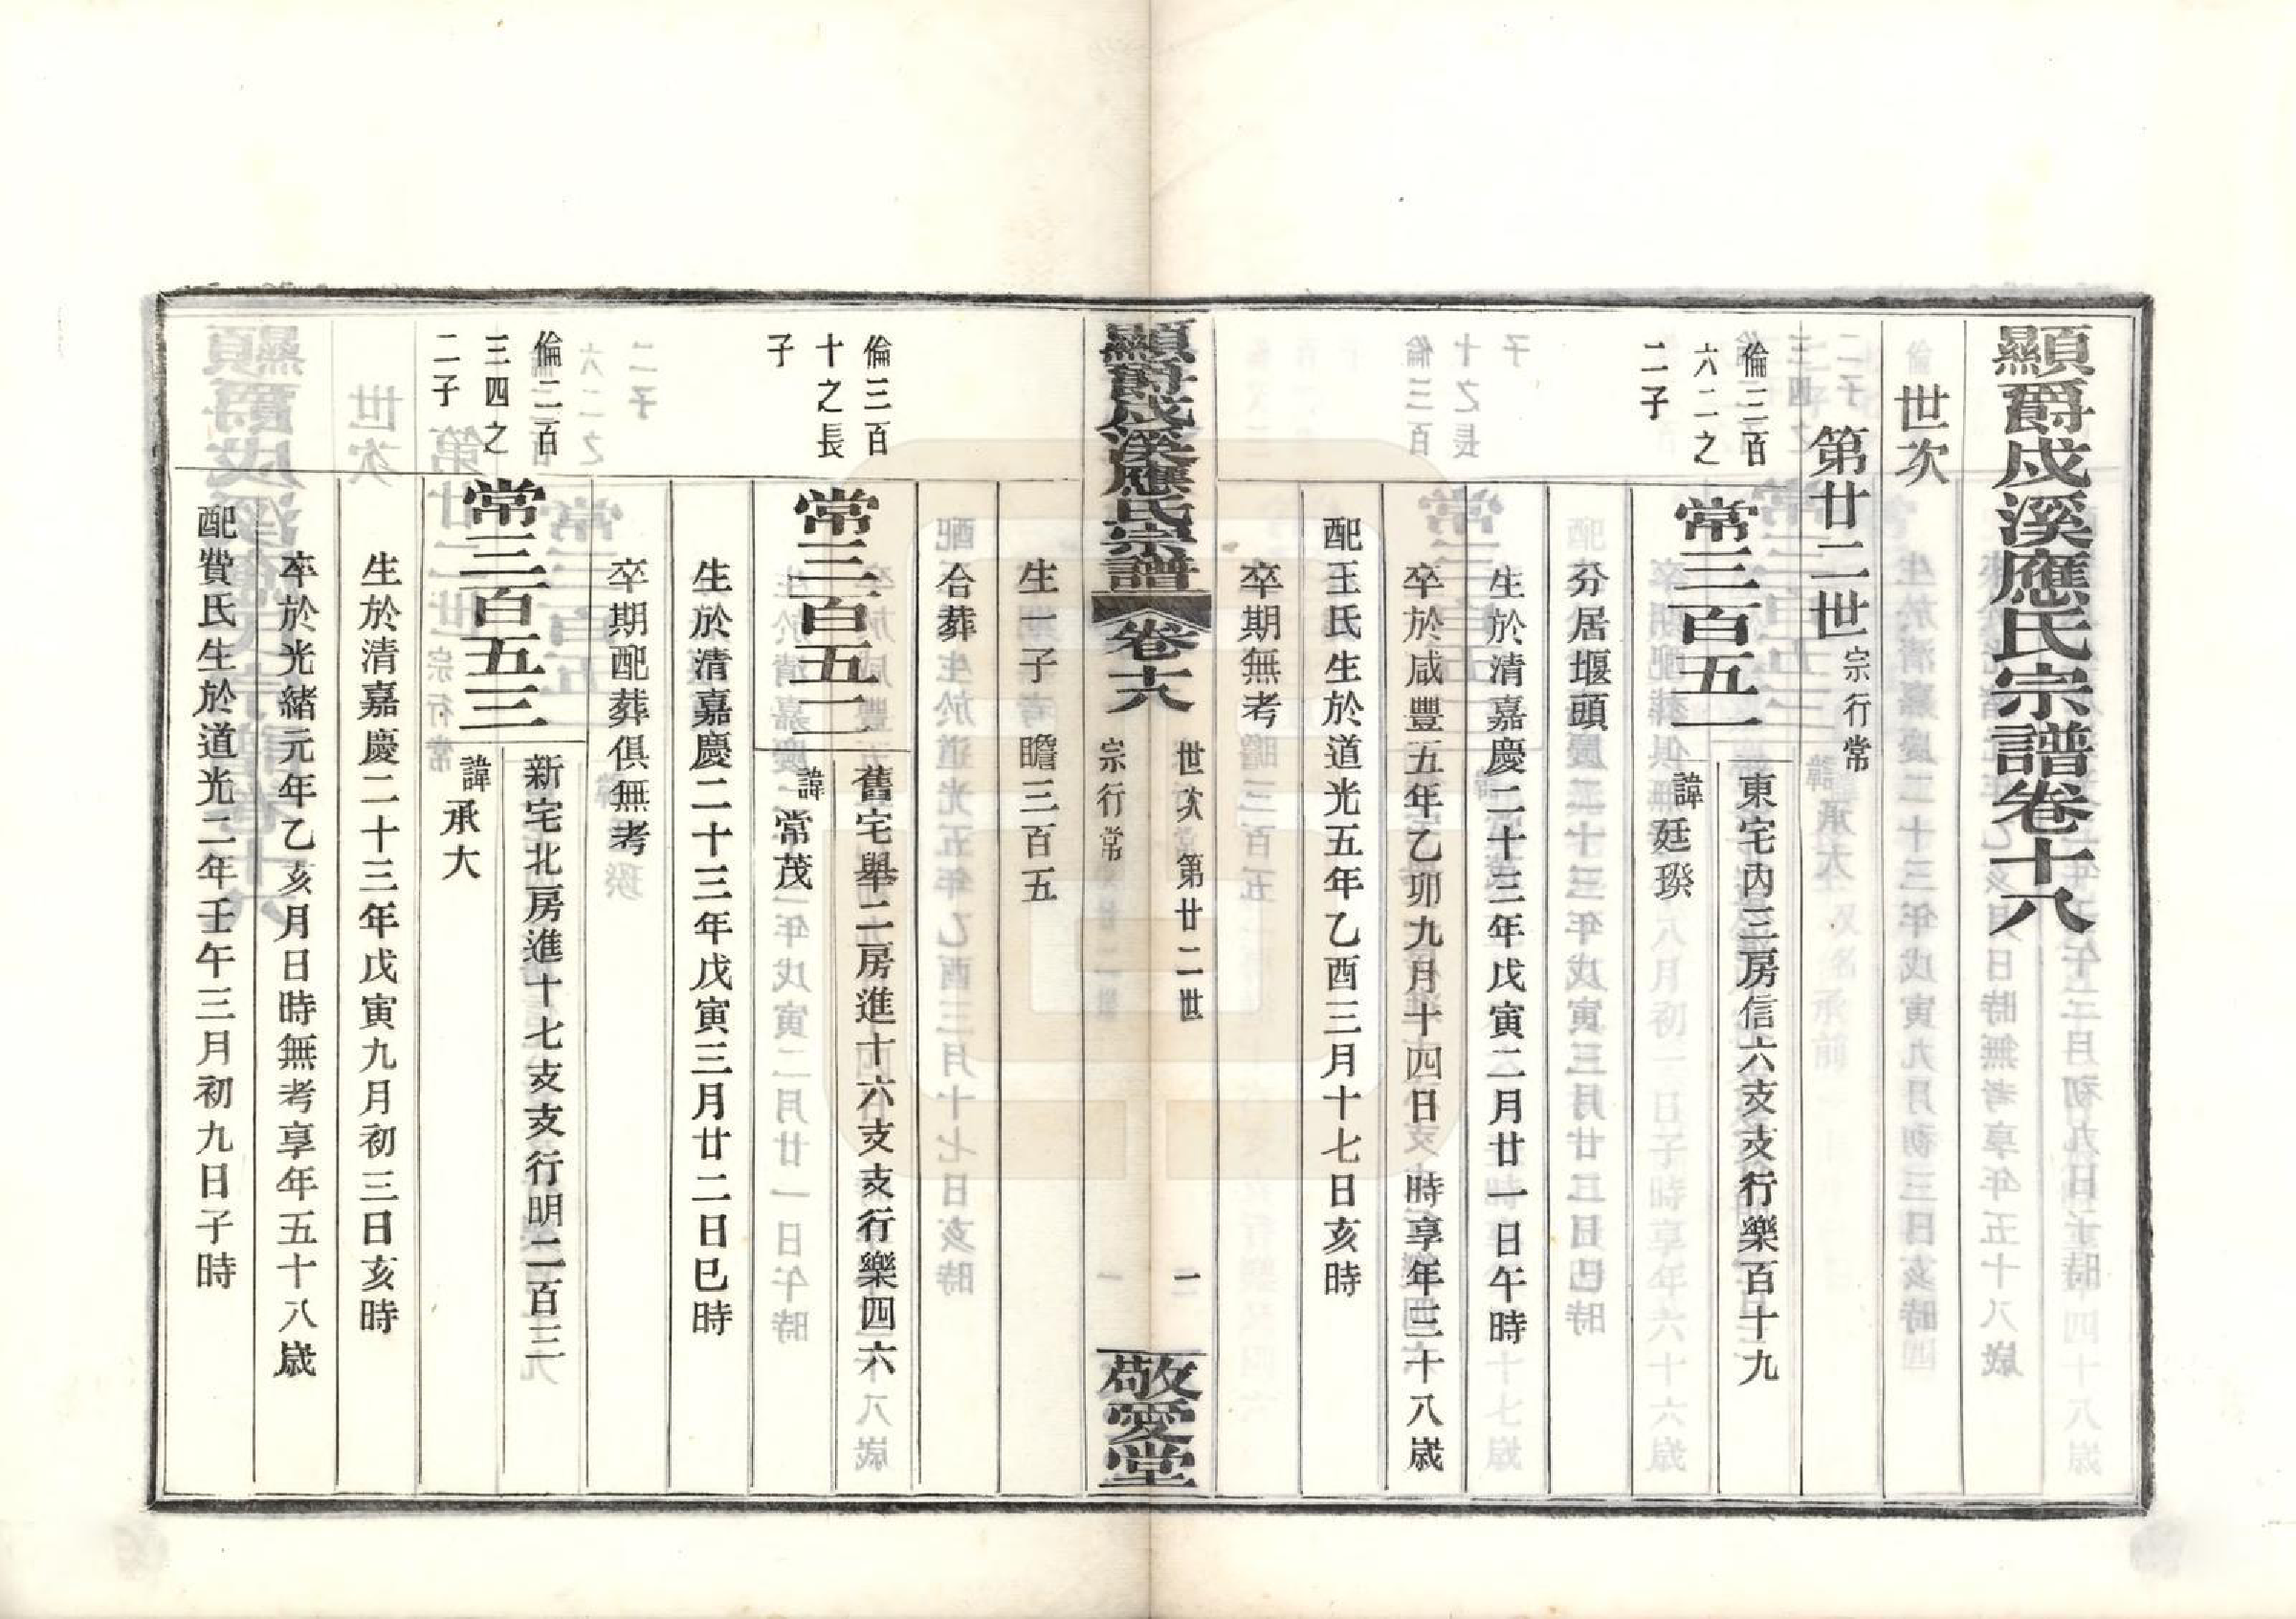 顯爵戍溪應氏宗譜卷十八
世次
第廿二世宗行常
倫三百
六二之
二子
常三百五一
東宅內三房信六支支行樂百十九
諱廷𤧬
分居堰頭
生於清嘉慶二十三年戊寅二月廿一日午時
卒於咸豐五年乙卯九月十四日 時享年三十八歲
配王氏生於道光五年乙酉三月十七日亥時
卒期無考
顯爵戍溪應氏宗譜
卷十八
世次 第廿二世
宗行常
一
敬愛堂
生一子瞻三百五
合葬
倫三百
十之長
子
常三百五二
舊宅舉二房進十六支支行樂四六
諱常茂
生於清嘉慶二十三年戊寅三月廿二日巳時
卒期配葬俱無考
倫二百
三四之
二子
常三百五三
新宅北房進十七支支行明二百三
諱承大
生於清嘉慶二十三年戊寅九月初三日亥時
卒於光緒元年乙亥月日時無考享年五十八歲
配費氏生於道光二年壬午三月初九日子時